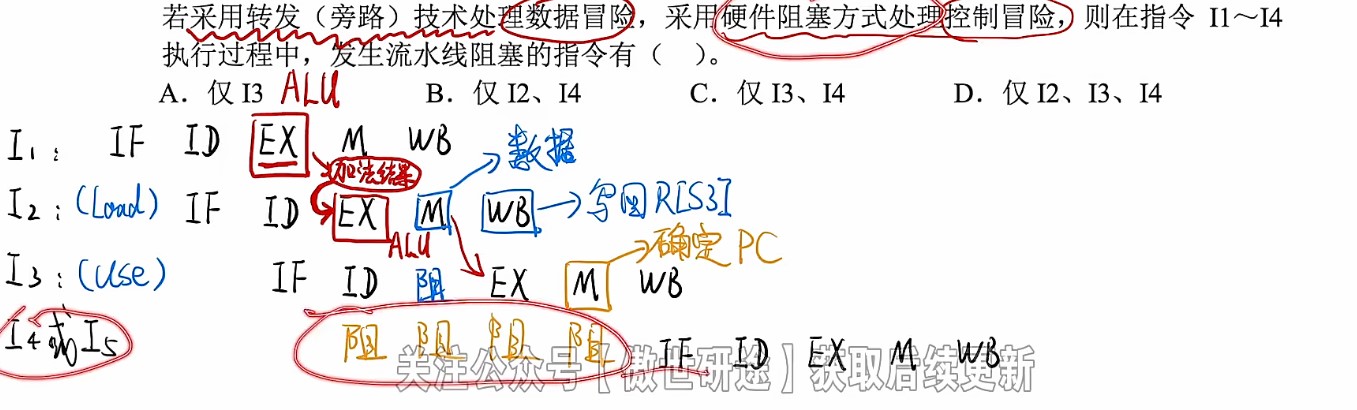 若采用转发（旁路）技术处理数据冒险，采用硬件阻塞方式处理控制冒险，则在指令 I1～I4
执行过程中，发生流水线阻塞的指令有（ ）。
A．仅 I3 B．仅 I2、I4 C．仅 I3、I4 D．仅 I2、I3、I4
ALU
I₁： IF ID EX M WB
加法结果 数据
I₂：(Load) IF ID EX M WB 写回R[S3]
ALU 确定PC
I₃：(Use) IF ID 阻 EX M WB
I₄或I₅ 阻 阻 阻 阻 IF ID EX M WB
关注公众号【傲世研途】获取后续更新